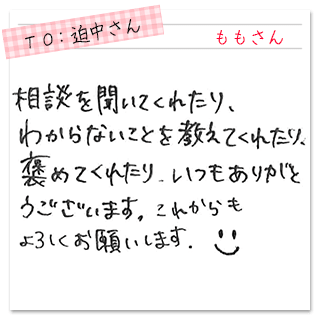 TO:迫中さん
ももさん
相談を聞いてくれたり、
わからないことを教えてくれたり、
褒めてくれたり、いつもありがと
うございます。これからも
よろしくお願いします.